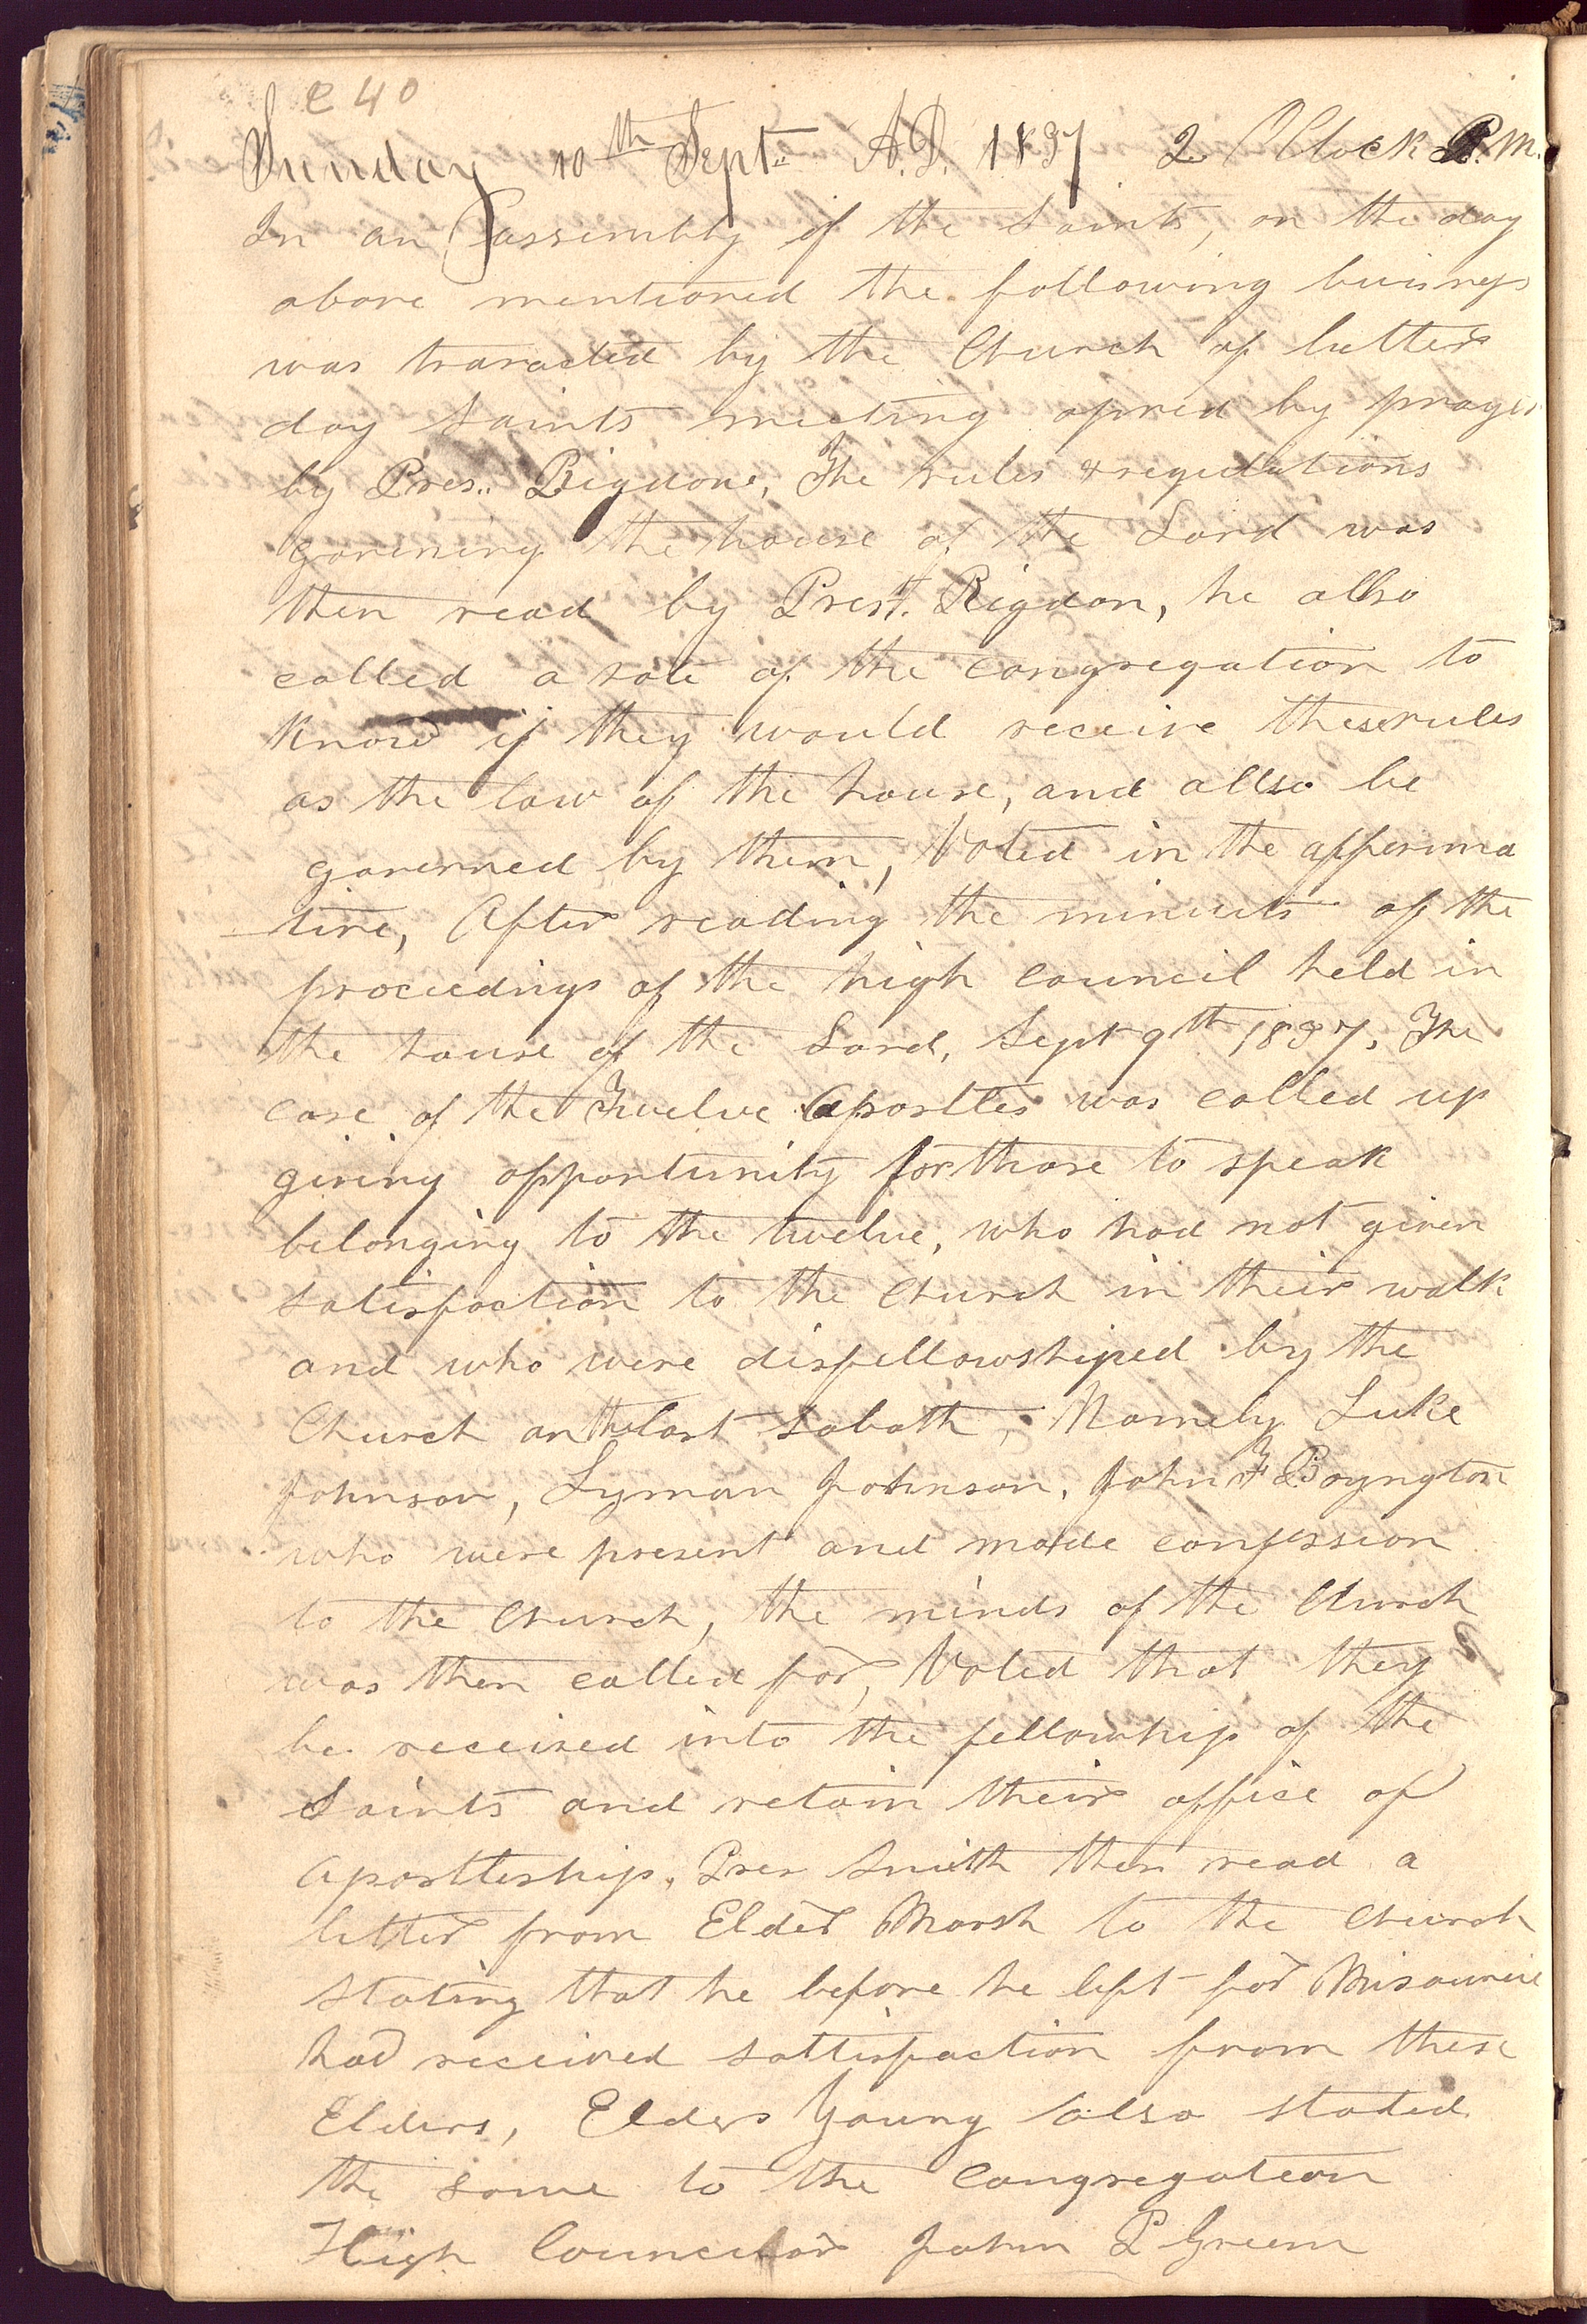 e 40
Sunday 10th Sept.. A.D. 1837 2 OClock P.M.
In an assembly of the Saints, on the day
above mentioned the following buisness
was transacted by the Church of latter
day Saints meeting opned by prayer
by Pres.. Rigdone, The rules & regulations
governing the house of the Lord was
then read by Prest. Rigdon, he allso
called a vote of the congregation to
know if they would receive these rules
as the law of the house, and allso be
governed by them, Voted in the afferima
tive, After reading the minuets of the
proceedings of the high council held in
the house of the Lord, Sept 9th 1837, The
case of the Twelve Apostles was called up
giving opportunity for those to speak
belonging to the twelve, who had not given
satisfaction to the church in their walk
and who were disfellowshiped by the
Church on the last Sabath, Namely Luke
Johnson, Lyman Johnson, John F Boyngton
who were present and made confession
to the church, the minds of the Church
was then called for, Voted that they
be received into the fellowship of the
Saints and retain their office of
Apostleship, Pres Smith then read a
letter from Elder Marsh to the church
stating that he before he left for Misourie
had received sattisfaction from these
Elders, Elders Young also stated
the same to the congregation
High Councilor John P Green